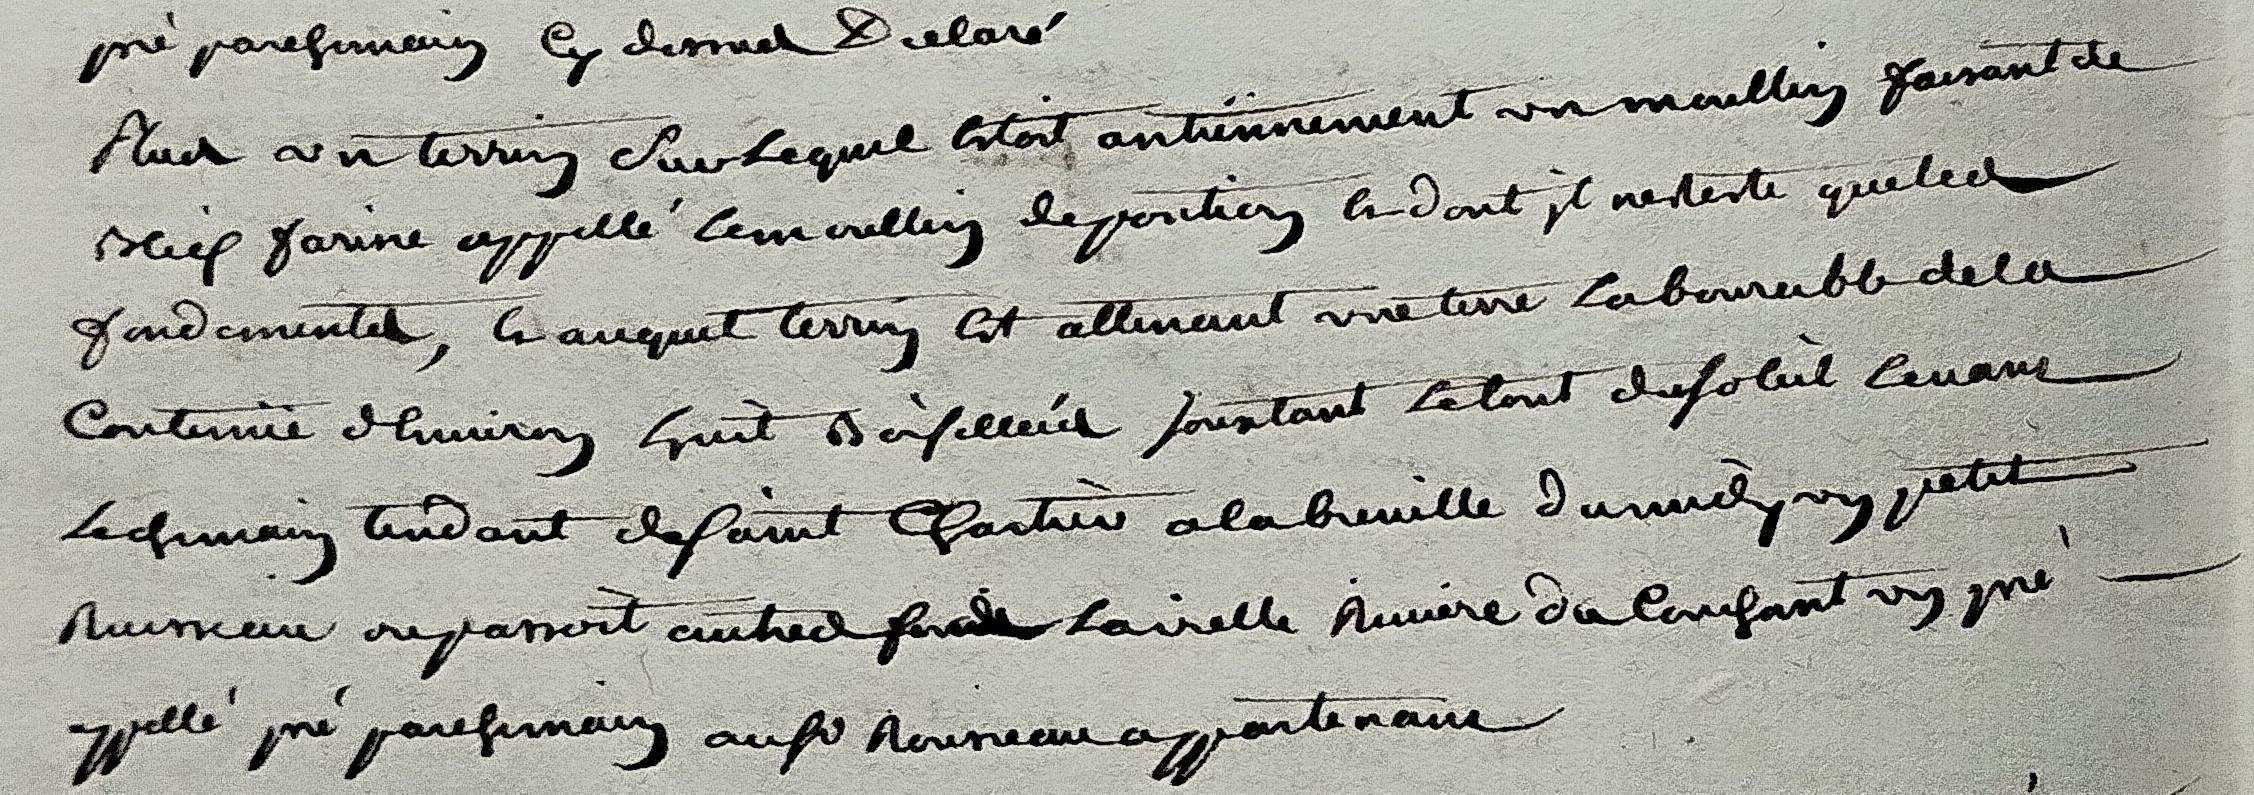 pré parchemain Cy dessus Declaré
Plus un terrin Sur Lequel Estoit antiennement un moullin faisant de
Bleif farine appellé Lemoullin deporition Et dont jl nereste queles
fondementes, Et auquel terrin Est attenant une terre Labourable dela
Contenüe dEnuiron huit Boisselleés Jouxtant Letout dusoleil Leuant
Lechemain tendant desaint Chartier alabreuille dumidy un petit
Ruisseau oupassoit autres fois Lavielle Riuiere du Couchant un pré
appellé pré parchemain ausr Rousseau appartenant